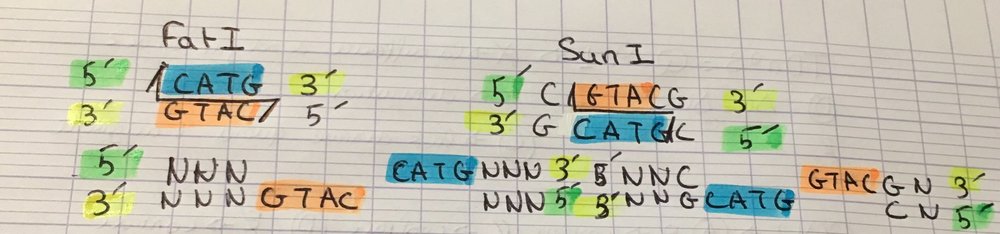 FatI SunI
5' /CATG 3' 5' C/GTACG 3'
3' GTAC/ 5' 3' G CATG/C 5'
5' NNN CATGNNN 3' 5' NNC GTACGN 3'
3' NNNGTAC NNN 5' 3' NNGCATG CN 5'